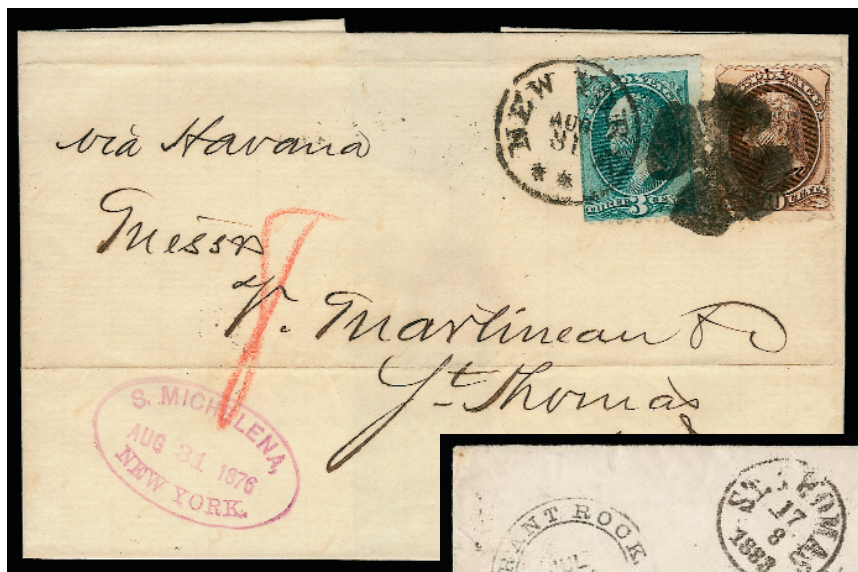 NEW
AUG
31
THREE CENTS
3
via Havana
Messrs
V. Martineau & Co
St Thomas
S. MICHELENA,
AUG 31 1876
NEW YORK.
RANT ROCK
JUL
ST. THOMAS
17
8
1883